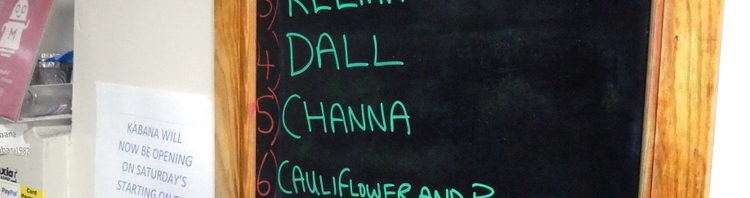 3)
4) DALL
5) CHANNA
6) CAULIFLOWER AND
KABANA WILL
NOW BE OPENING
ON SATURDAY'S
STARTING ON
M
bana
bana1982
PayPal
Card